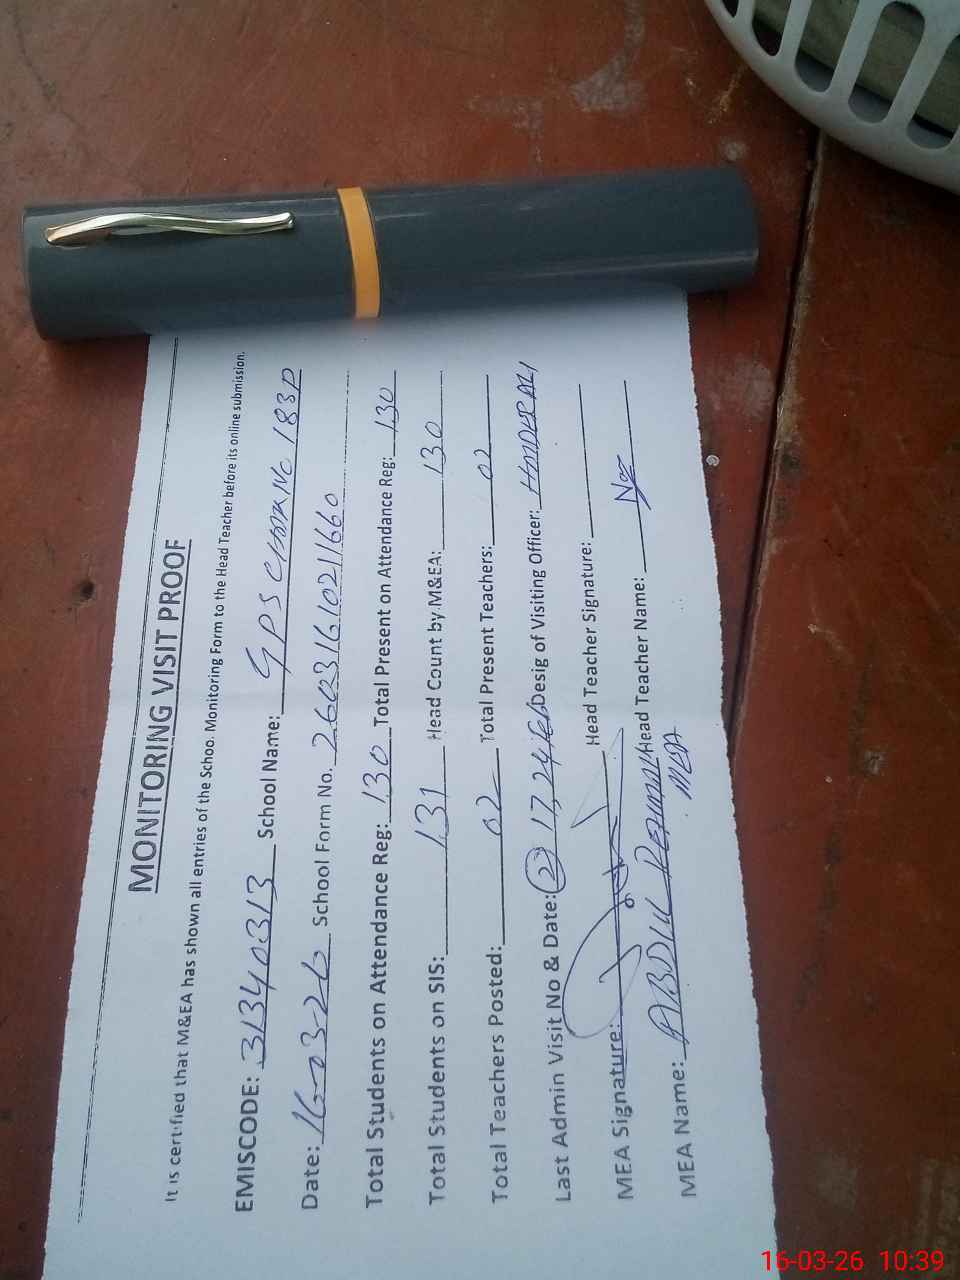 MONITORING VISIT PROOF
It is certified that M&EA has shown all entries of the School Monitoring Form to the Head Teacher before its online submission.
EMISCODE: 31340313 School Name: GPS CHAK No 183P
Date: 16-03-26 School Form No. 26031610211660
Total Students on Attendance Reg: 130 Total Present on Attendance Reg: 130
Total Students on SIS: 131 Head Count by M&EA: 130
Total Teachers Posted: 02 Total Present Teachers: 02
Last Admin Visit No & Date: (2) 17, 24/Feb Desig of Visiting Officer:
MEA Signature: Head Teacher Signature:
MEA Name: ABDUL REHMAN Head Teacher Name:
MEA
16-03-26 10:39